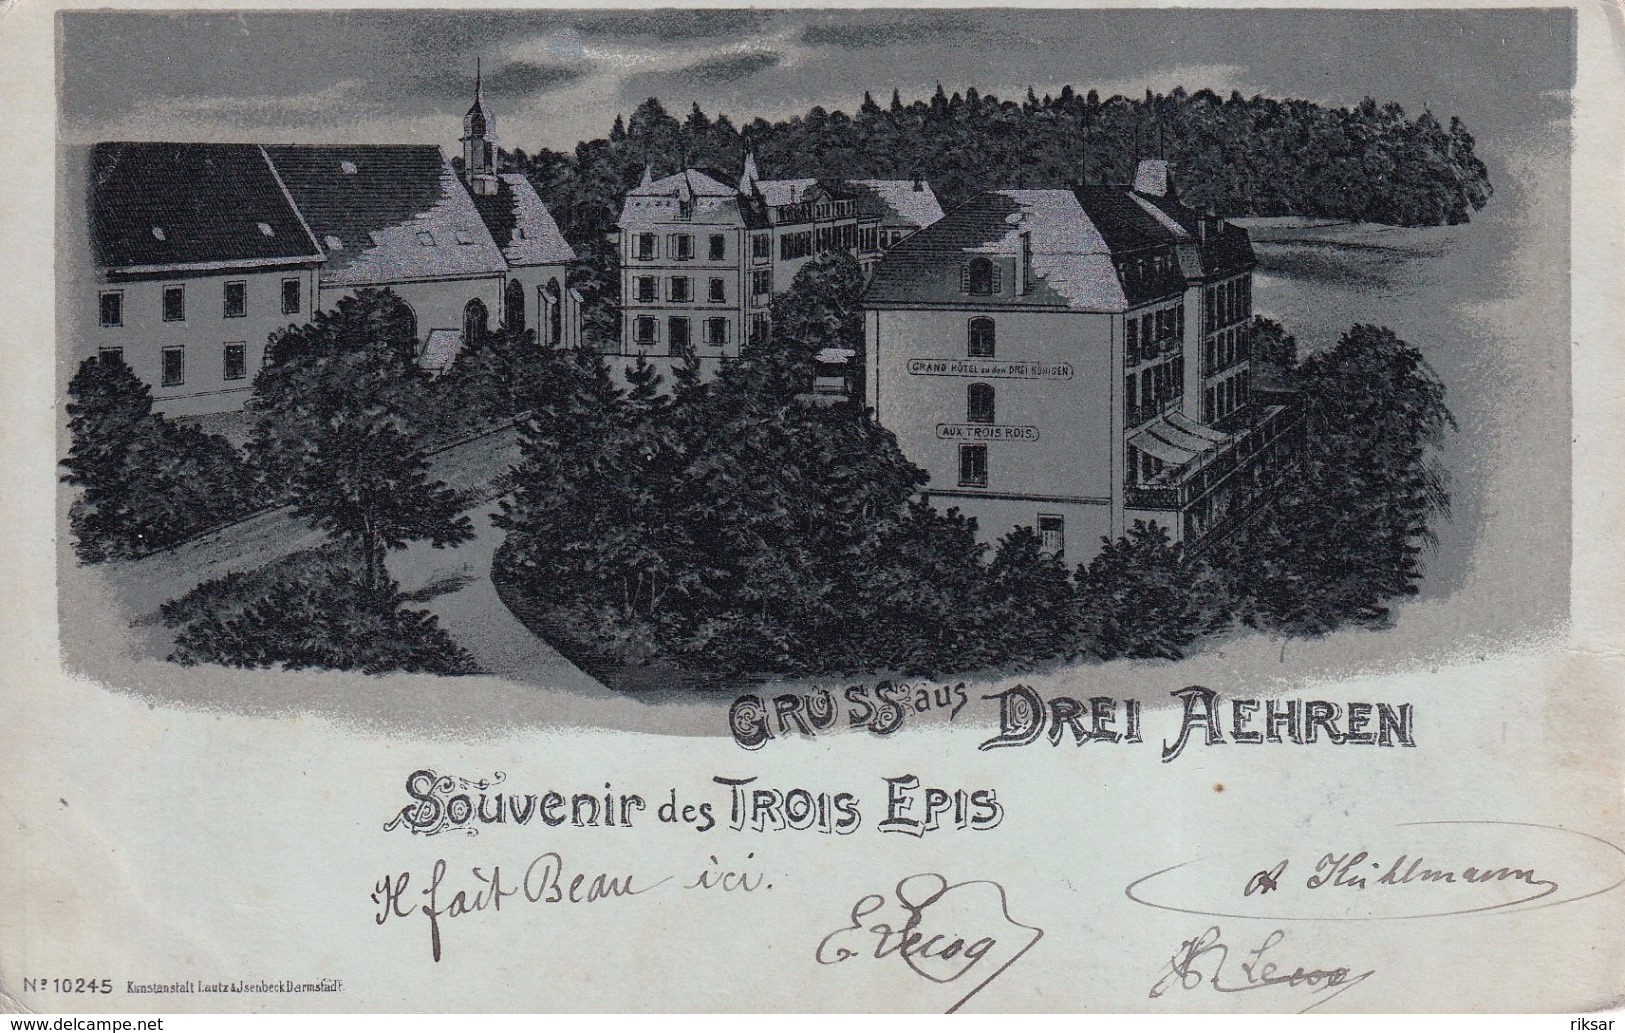 GRAND HÔTEL zu den DREI KÖNIGEN
AUX TROIS ROIS.
GRUSS aus DREI AEHREN
Souvenir des TROIS EPIS
Il fait Beau ici.
A Kühlmann
E Lecoq
H. 
Nº 10245 Kunstanstalt Lautz & Jsenbeck Darmstadt
delcampe.net
riksar